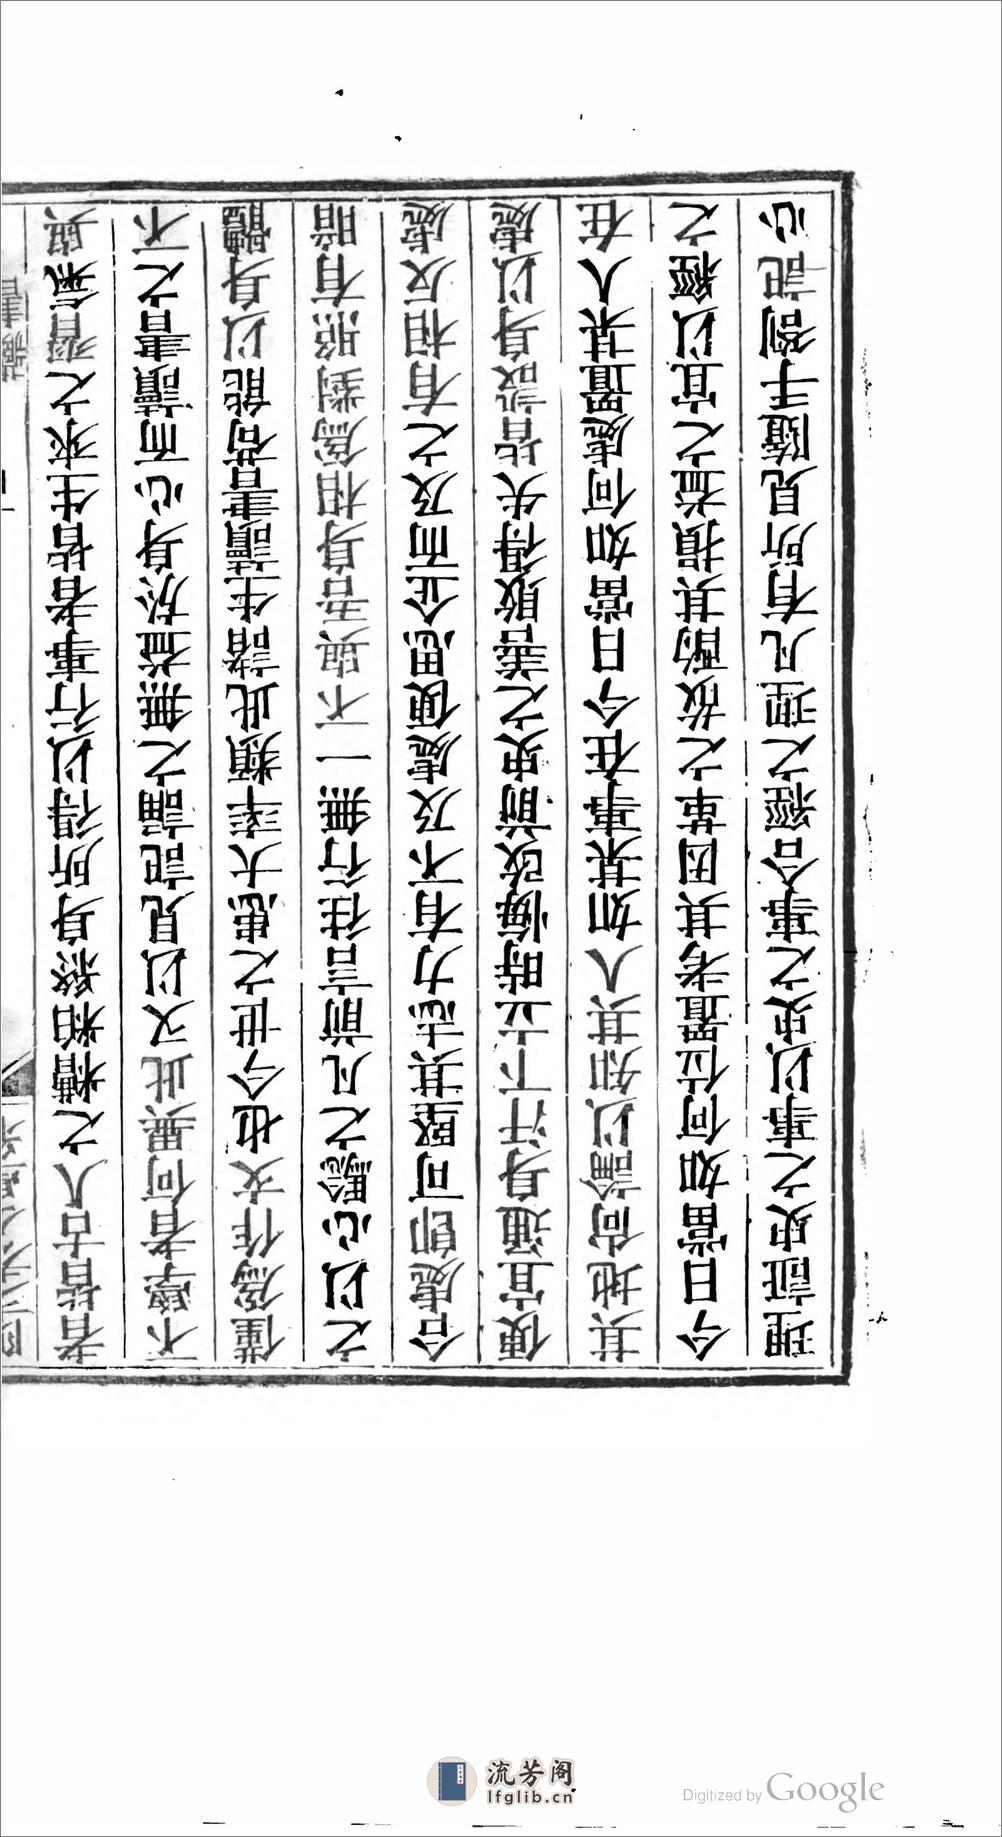 者皆古人之糟粕終身所得以行事者皆生來之習氣與
不學者何異此又以見記誦之無益於身心而讀書之不
僅爲作文也今世之患大率類此諸生讀書苟能以身體
之以心驗之凡前言往行無一不與吾身相爲對照有暗
合處卽可堅其志力有不及處便思企而及之有相反處
便宜通身汗下立時悔改前史之善敗得失皆設身以處
其地尚論以知其人如某事在今日當如何處置某人在
今日當如何位置考其因革之故酌其損益之宜以經之
理証史之事以史之事合經之理凡有所見隨手劄記心
流芳阁
lfglib.cn
Digitized by Google